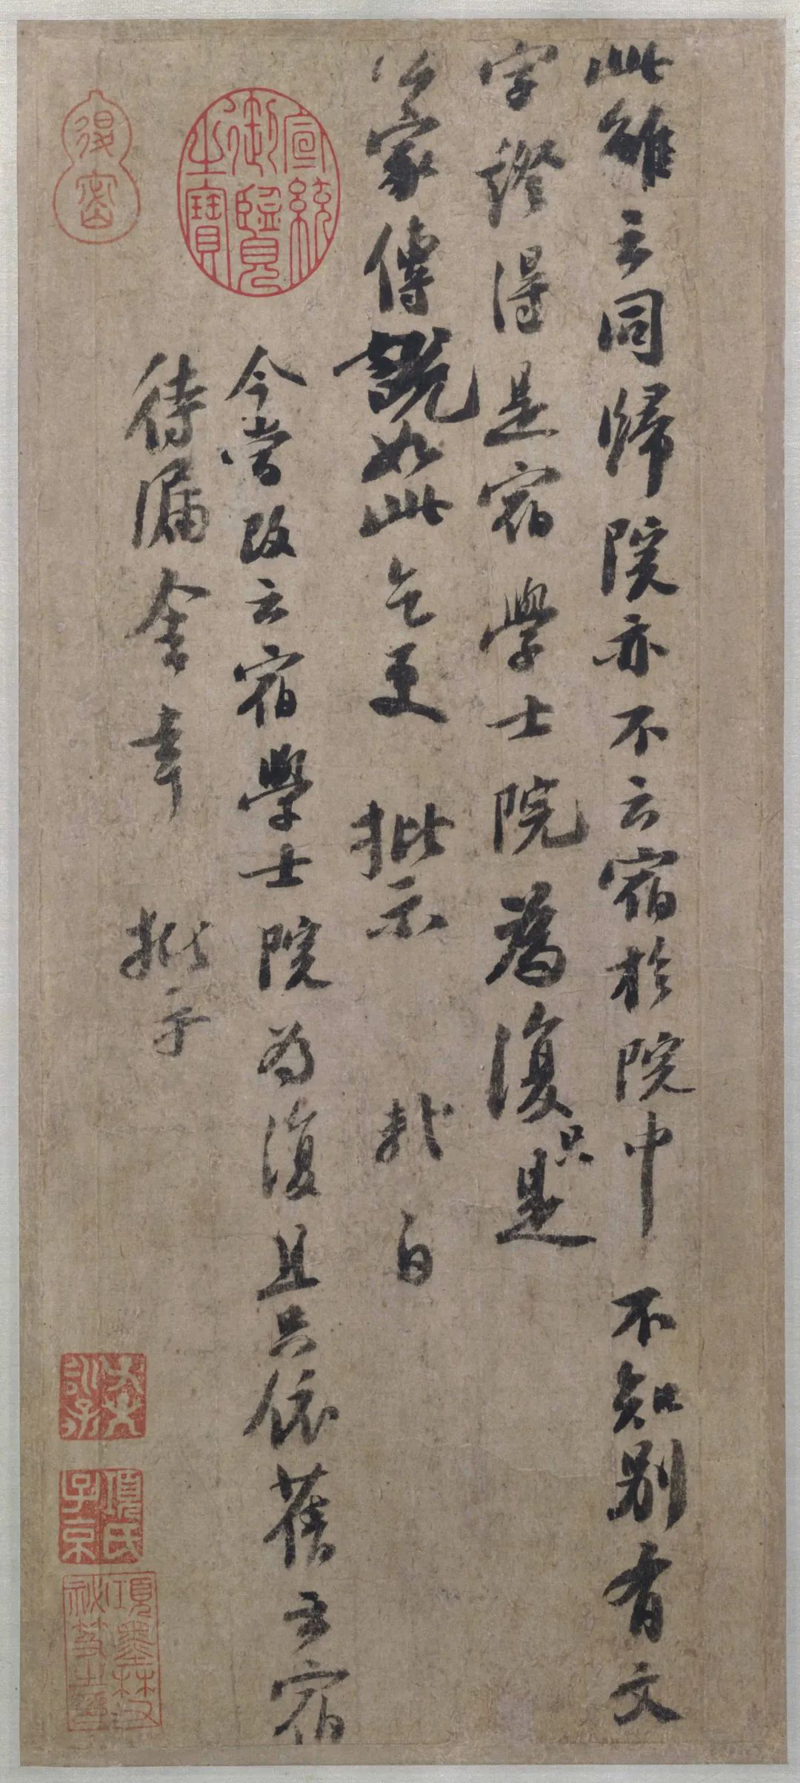 此雖云同歸院亦不云宿於院中不知別有文
字證得是宿學士院為復只是
家傳說如此乞更批示 光白
今當改云宿學士院為復且只依舊云宿
待漏舍幸批示
宣統御覽之寶
項氏子京
項墨林父祕笈之印